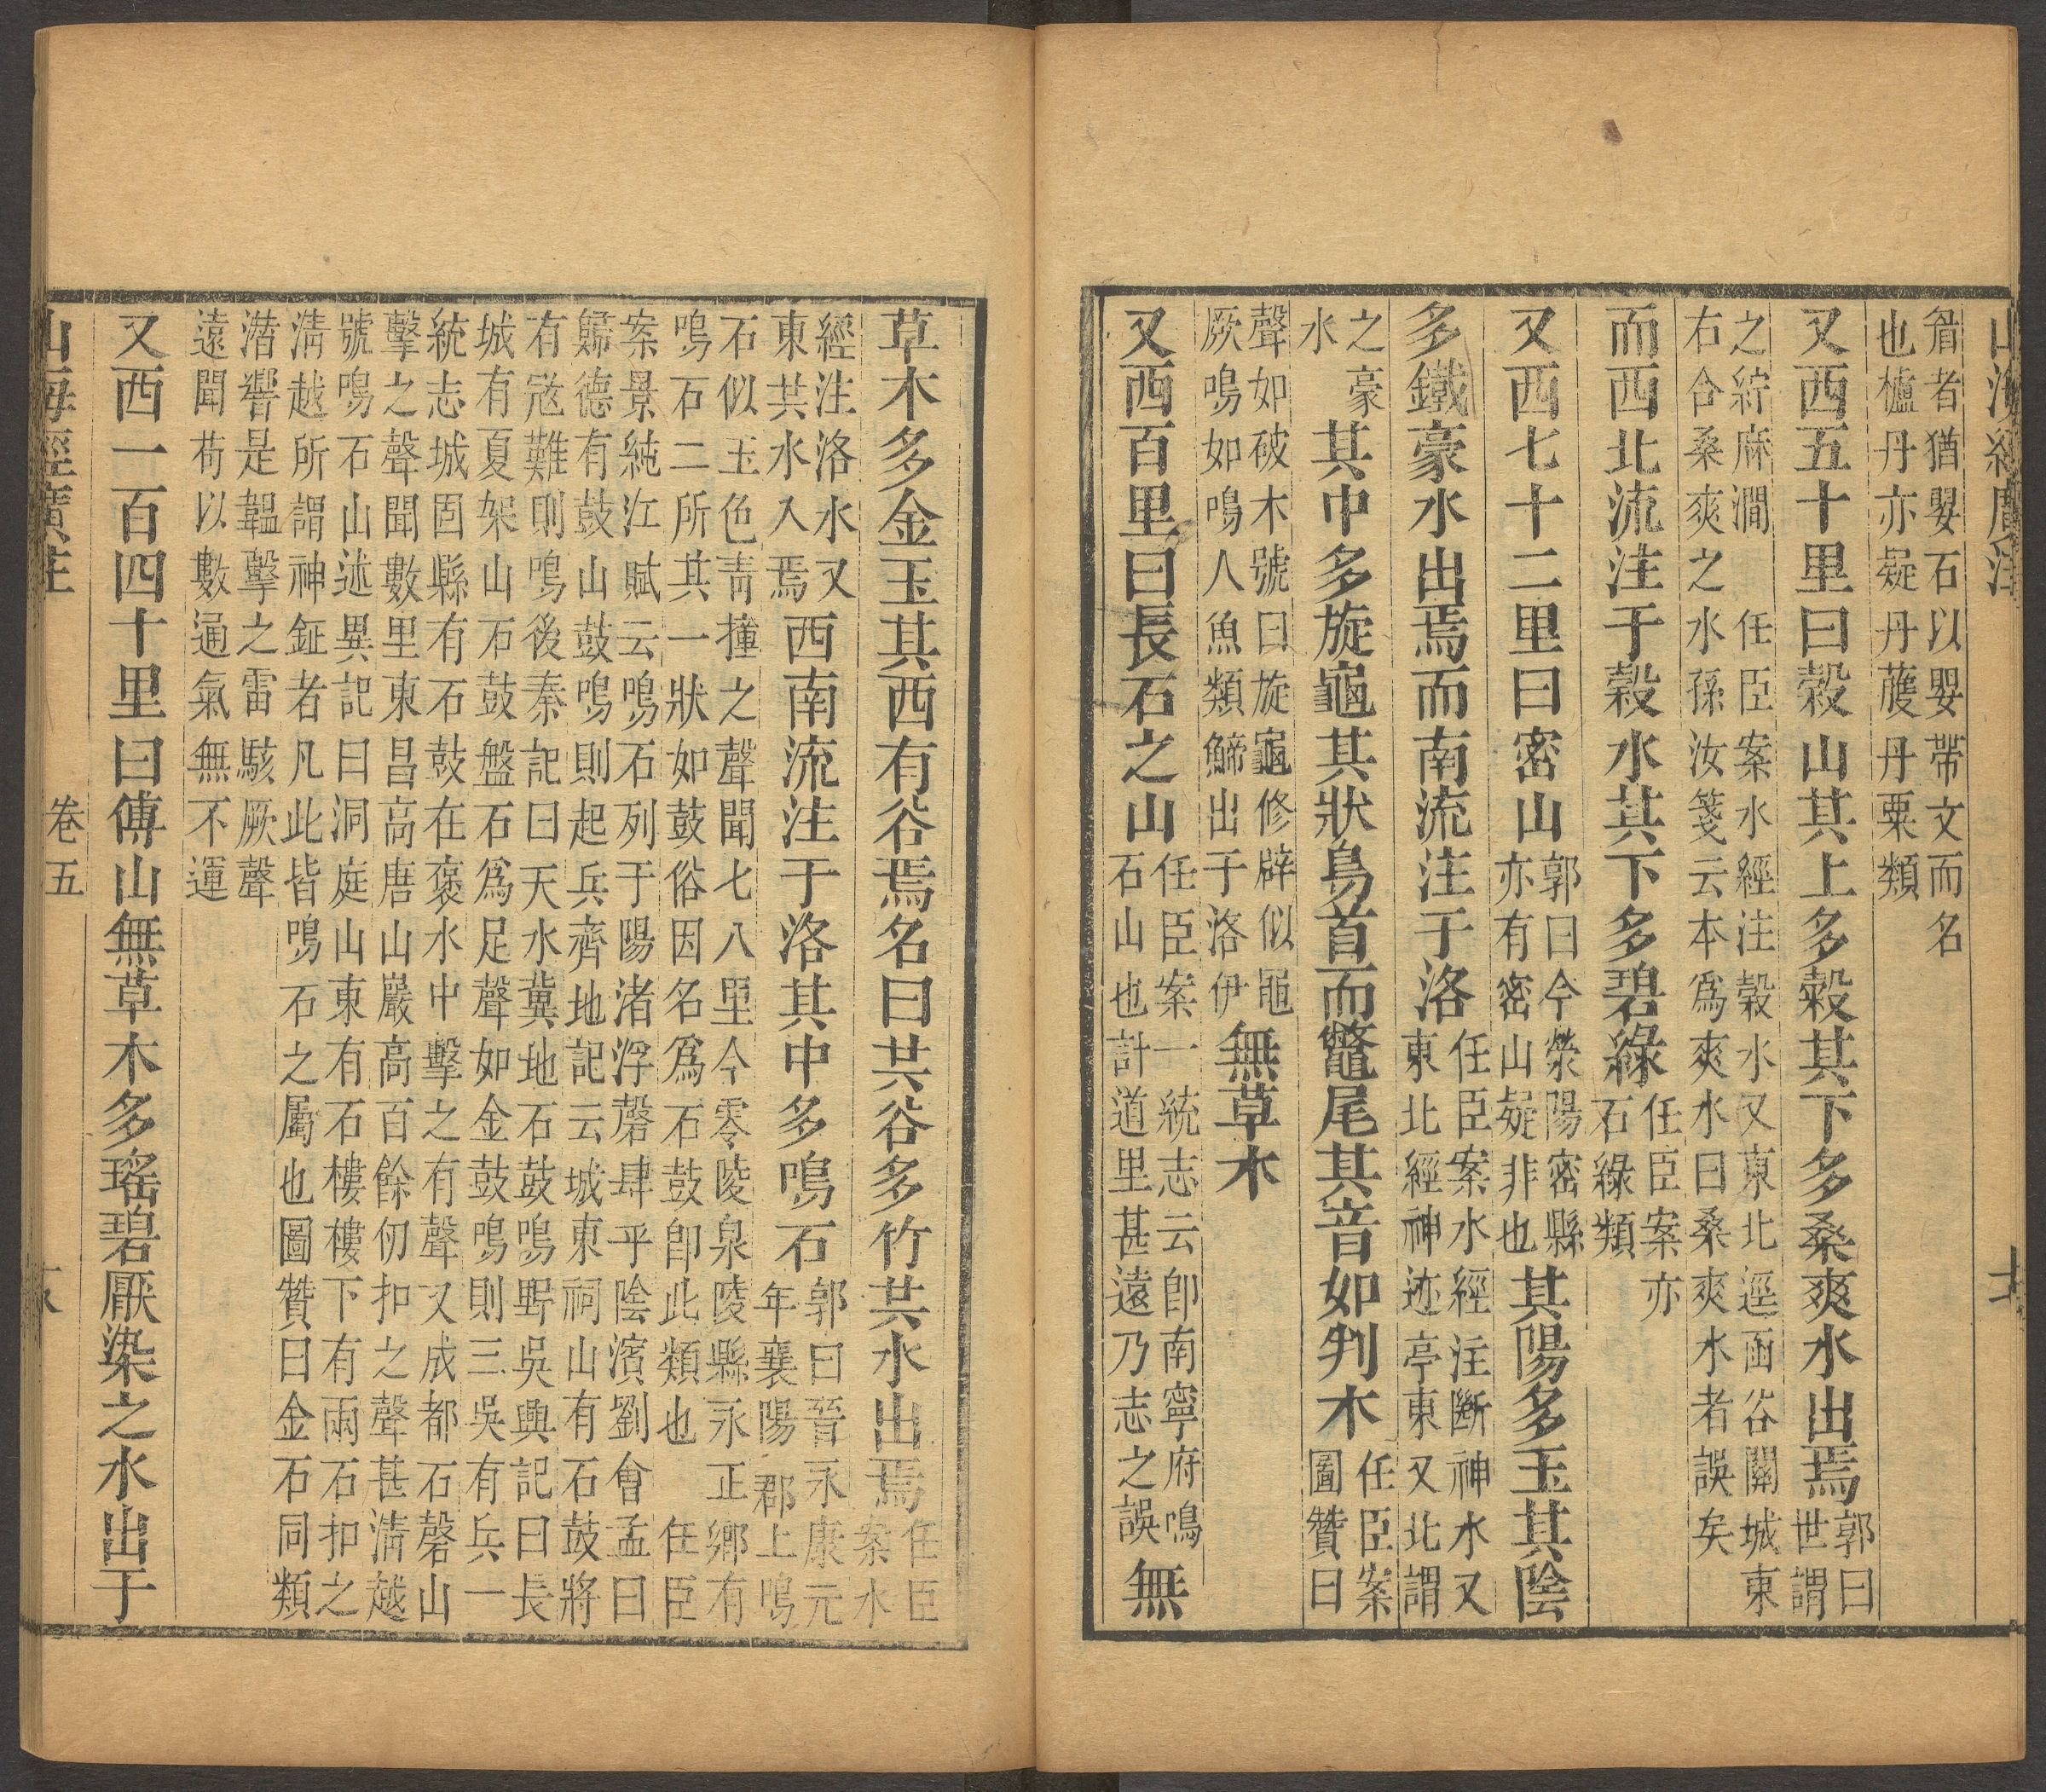 山海經廣注
者猶嬰石以嬰帶文而名
也櫨丹亦疑丹雘丹粟類
又西五十里曰穀山其上多榖其下多桑爽水出焉郭曰世謂
之紵麻澗 任臣案水經注穀水又東北逕函谷關城東
右合桑爽之水孫汝箋云本爲爽水曰桑爽水者誤矣
而西北流注于穀水其下多碧綠任臣案亦石綠類
又西七十二里曰密山郭曰今滎陽密縣亦有密山疑非也其陽多玉其陰
多鐵豪水出焉而南流注于洛任臣案水經注斷神水又東北經神迹亭東又北謂
之豪水其中多旋龜其狀鳥首而鼈尾其音如判木任臣案圖贊曰
聲如破木號曰旋龜修辟似黽厥鳴如鳴人魚類鯑出于洛伊無草木
又西百里曰長石之山任臣案一統志云卽南寧府鳴石山也計道里甚遠乃志之誤無
草木多金玉其西有谷焉名曰共谷多竹共水出焉任臣案水
經注洛水又東共水入焉西南流注于洛其中多鳴石郭曰晉永康元年襄陽郡上鳴
石似玉色靑撞之聲聞七八里今零陵泉陵縣永正鄉有
鳴石二所其一狀如鼓俗因名爲石鼓卽此類也 任臣
案景純江賦云鳴石列于陽渚浮磬肆乎陰濱劉會孟曰
歸德有鼓山鼓鳴則起兵齊地記云城東祠山有石鼓將
有㓂難則鳴後秦記曰天水冀地石鼓鳴野吳興記曰長
城有夏架山石鼓盤石爲足聲如金鼓鳴則三吳有兵一
統志城固縣有石鼓在褒水中擊之有聲又成都石磬山
擊之聲聞數里東昌高唐山巖高百餘仞扣之聲甚淸越
號鳴石山述異記曰洞庭山東有石樓樓下有兩石扣之
淸越所謂神鉦者凡此皆鳴石之屬也圖贊曰金石同類
潛響是韞擊之雷駭厥聲
遠聞苟以數通氣無不運
又西一百四十里曰傅山無草木多瑤碧厭染之水出于
山海經廣注 卷五